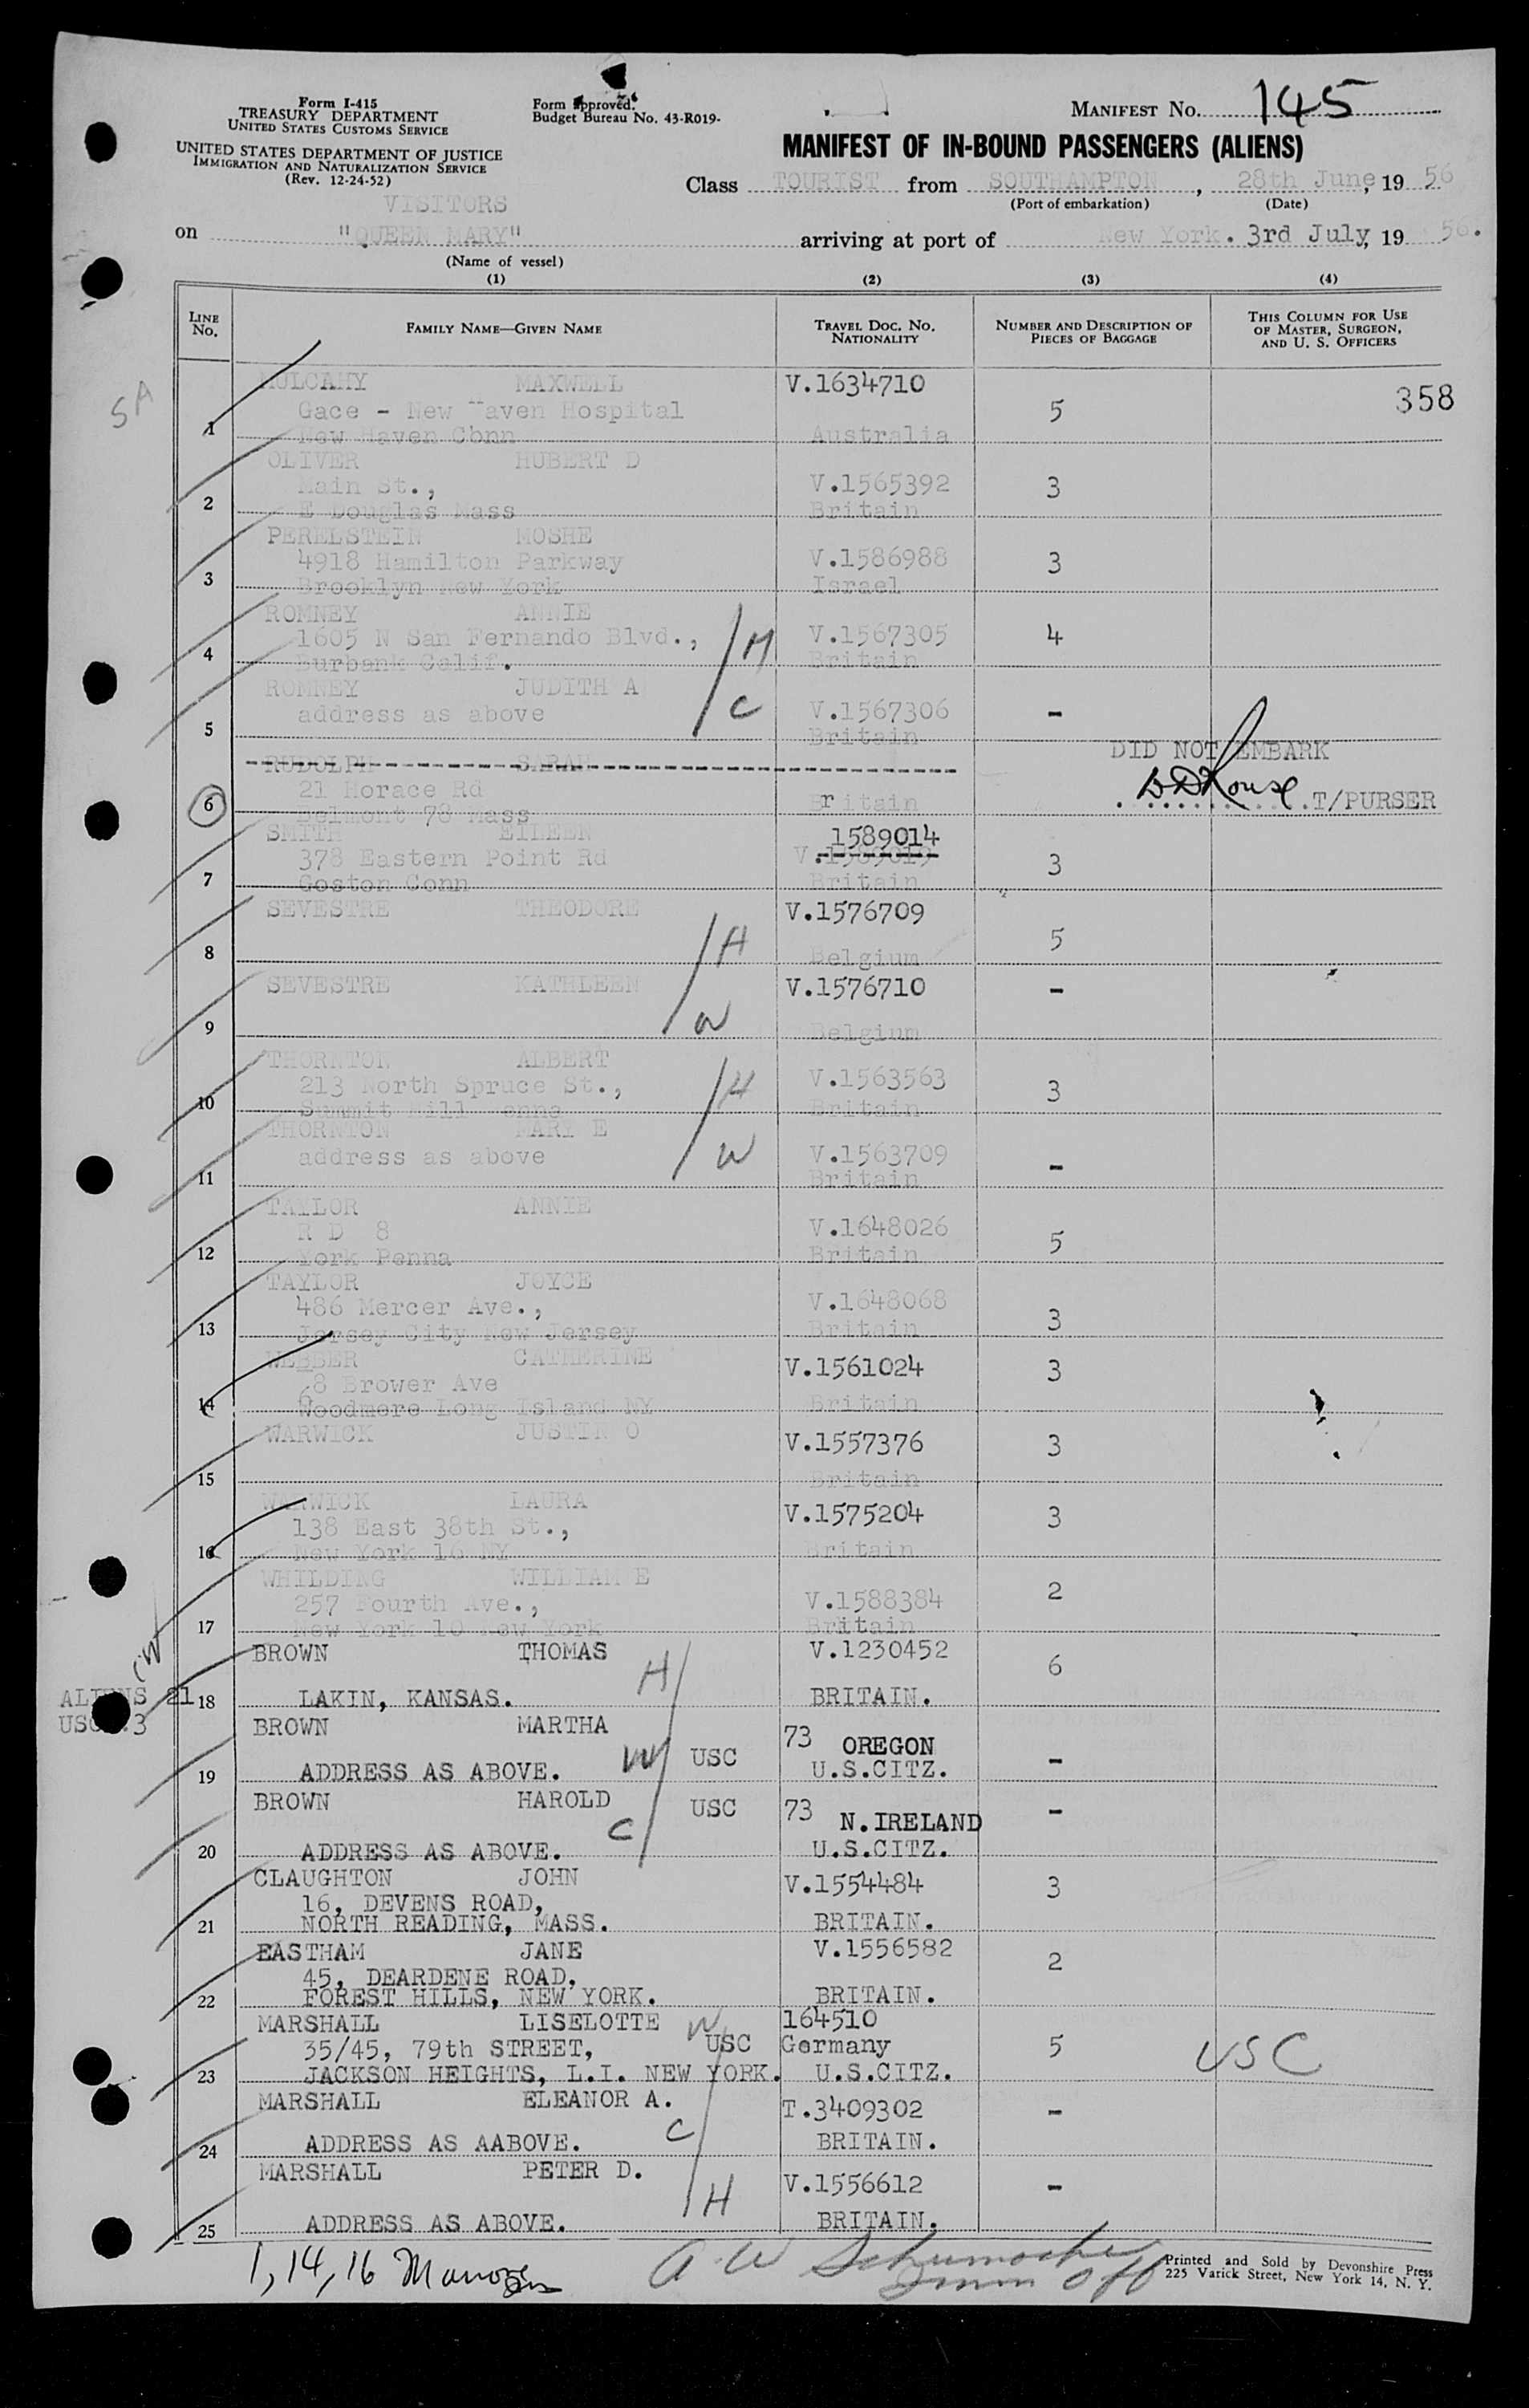 Form I-415
TREASURY DEPARTMENT
UNITED STATES CUSTOMS SERVICE
UNITED STATES DEPARTMENT OF JUSTICE
IMMIGRATION AND NATURALIZATION SERVICE
(Rev. 12-24-52)
Form approved.
Budget Bureau No. 43-R019-
MANIFEST No. 145
MANIFEST OF IN-BOUND PASSENGERS (ALIENS)
Class TOURIST from SOUTHAMPTON, 28th June, 19 56
(Port of embarkation) (Date)
VISITORS
on "QUEEN MARY" arriving at port of New York. 3rd July, 19 56.
(Name of vessel)
(1) (2) (3) (4)
LINE No. FAMILY NAME—GIVEN NAME TRAVEL DOC. No. NATIONALITY NUMBER AND DESCRIPTION OF PIECES OF BAGGAGE THIS COLUMN FOR USE OF MASTER, SURGEON, AND U. S. OFFICERS
SA
MULCAHY MAXWELL V.1634710
Gace - New Haven Hospital 5 358
1 New Haven Conn Australia
OLIVER HUBERT D
Main St., V.1565392 3
2 E Douglas Mass Britain
PERELSTEIN MOSHE
4918 Hamilton Parkway V.1586988 3
3 Brooklyn New York Israel
ROMNEY ANNIE
1605 N San Fernando Blvd., H V.1567305 4
4 Burbank Calif. Britain
ROMNEY JUDITH A
address as above C V.1567306 -
5 Britain
RUDOLPH SARAH DID NOT EMBARK
21 Horace Rd
6 Belmont 78 Mass Britain T/PURSER
SMITH EILEEN 1589014
378 Eastern Point Rd V.1589019 3
7 Goston Conn Britain
SEVESTRE THEODORE V.1576709
H 5
8 Belgium
SEVESTRE KATHLEEN V.1576710 -
9 W Belgium
THORNTON ALBERT
213 North Spruce St., H V.1563563 3
10 Summit Hill Penna Britain
THORNTON MARY E
address as above W V.1563709 -
11 Britain
TAYLOR ANNIE
R D 8 V.1648026 5
12 York Penna Britain
TAYLOR JOYCE
486 Mercer Ave., V.1648068 3
13 Jersey City New Jersey Britain
WEBBER CATHERINE V.1561024 3
68 Brower Ave
14 Woodmere Long Island NY Britain
WARWICK JUSTIN O V.1557376 3
15 Britain
WARWICK LAURA V.1575204 3
138 East 38th St.,
16 New York 16 NY Britain
WHILDING WILLIAM E 2
257 Fourth Ave., V.1588384
17 New York 10 New York Britain
BROWN THOMAS V.1230452
H 6
ALIENS 21 18 LAKIN, KANSAS. BRITAIN.
USC 3
BROWN MARTHA 73 OREGON
W USC -
19 ADDRESS AS ABOVE. U.S.CITZ.
BROWN HAROLD USC 73 N.IRELAND -
C
20 ADDRESS AS ABOVE. U.S.CITZ.
CLAUGHTON JOHN V.1554484 3
16, DEVENS ROAD,
21 NORTH READING, MASS. BRITAIN.
EASTHAM JANE V.1556582
45, DEARDENE ROAD, 2
22 FOREST HILLS, NEW YORK. BRITAIN.
MARSHALL LISELOTTE W 164510
35/45, 79th STREET, USC Germany 5 USC
23 JACKSON HEIGHTS, L.I. NEW YORK. U.S.CITZ.
MARSHALL ELEANOR A. T.3409302 -
C
24 ADDRESS AS AABOVE. BRITAIN.
MARSHALL PETER D. V.1556612 -
H
25 ADDRESS AS ABOVE. BRITAIN.
1, 14, 16
A W Schumacher
Imm Off
Printed and Sold by Devonshire Press
225 Varick Street, New York 14, N. Y.